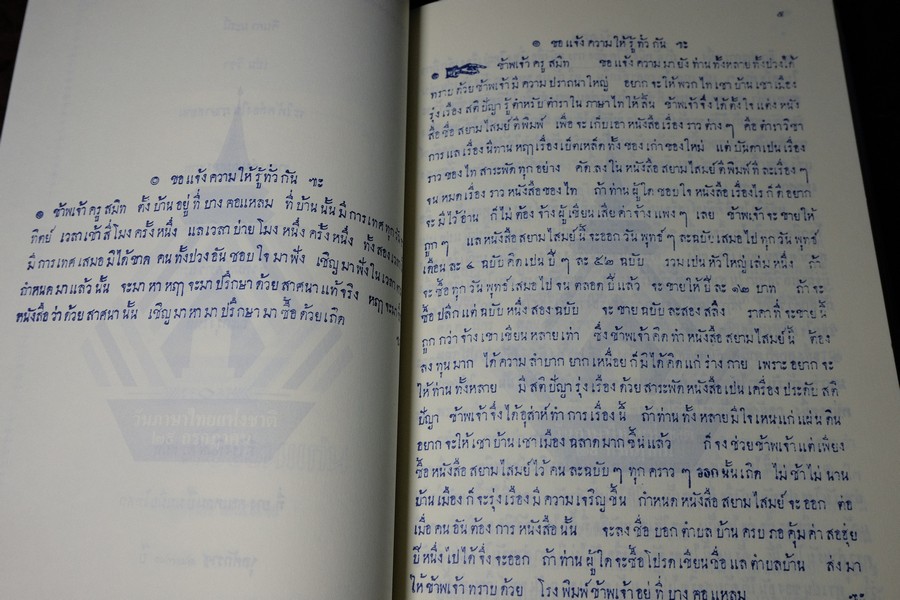 ๏ ขอ แจ้ง ความ ให้ รู้ ทั่ว กัน ฯะ
๏ ข้าพเจ้า ครู สมิท ตั้ง บ้าน อยู่ ที่ บาง คอแหลม ที่ บ้าน นั้น มี การ เทศ ทุก วัน
ทิตย์ เวลา เช้า สี่ โมง ครั้ง หนึ่ง แล เวลา บ่าย โมง หนึ่ง ครั้ง หนึ่ง ทั้ง สอง เวลา
มี การ เทศ เสมอ มิ ได้ ขาด คน ทั้ง ปวง อัน ชอบ ใจ มา ฟัง เชิญ มา ฟัง ใน เวลา
กำหนด มา แล้ว นั้น จะ มา หา หฤๅ จะ มา ปฤกษา ด้วย สาศนา แท้ จริง หฤๅ จะ
หนังสือ ว่า ด้วย สาศนา นั้น เชิญ มา หา มา ปฤกษา มา ซื้อ ด้วย เถิด
๕
๏ ขอ แจ้ง ความ ให้ รู้ ทั่ว กัน ฯะ
๏ ข้าพเจ้า ครู สมิท ขอ แจ้ง ความ มา ยัง ท่าน ทั้งหลาย ทั้งปวง ได้
ทราบ ด้วย ข้าพเจ้า มี ความ ปราถนา ใหญ่ อยาก จะ ให้ พวก ไท เขา บ้าน เขา เมือง
รุ่ง เรื่อง สติ ปัญา รู้ ตำหรับ ตำรา ใน ภาษา ไท ให้ สิ้น ข้าพเจ้า จึ่ง ได้ ตั้ง ใจ แต่ง หนัง
สือ ชื่อ สยาม ไสมย์ ตี พิมพ์ เพื่อ จะ เก็บ เอา หนังสือ เรื่อง ราว ต่าง ๆ คือ ตำรา วิชา
การ แล เรื่อง นิทาน หฤๅ เรื่อง เบ็ดเหล็ด ทั้ง ของ เก่า ของ ใหม่ แต่ บันดา เปน เรื่อง
ราว ของ ไท สาระพัด ทุก อย่าง คัด ลง ใน หนังสือ สยาม ไสมย์ ตี พิมพ์ ที ละ เรื่อง ๆ
จน หมด เรื่อง ราว หนังสือ ของ ไท ถ้า ท่าน ผู้ ใด ชอบ ใจ หนังสือ เรื่อง ไร ก็ ดี อยาก
จะ มี ไว้ อ่าน ก็ ไม่ ต้อง จ้าง ผู้ เขียน เสีย ค่า จ้าง แพง ๆ เลย ข้าพเจ้า จะ ขาย ให้
ถูก ๆ แล หนังสือ สยาม ไสมย์ นี้ จะ ออก วัน พุทธ์ ๆ ละ ฉบับ เสมอ ไป ทุก วัน พุทธ์
เดือน ละ ๔ ฉบับ คิด เปน ปี ๆ ละ ๕๒ ฉบับ รวม เปน หัว ใหญ่ เล่ม หนึ่ง ถ้า
จะ ซื้อ ทุก วัน พุทธ์ เสมอ ไป จน ตลอด ปี แล้ว จะ ขาย ให้ ปี ละ ๑๒ บาท ถ้า จะ
ซื้อ ปลีก แต่ ฉบับ หนึ่ง สอง ฉบับ จะ ขาย ฉบับ ละ สอง สลึง ราคา ที่ จะ ขาย นี้
ถูก กว่า จ้าง เขา เขียน หลาย เท่า ซึ่ง ข้าพเจ้า คิด ทำ หนังสือ สยาม ไสมย์ นี้ ต้อง
ลง ทุน มาก ได้ ความ ลำบาก ยาก เหนื่อย ก็ มิ ได้ คิด แก่ ร่าง กาย เพราะ อยาก จะ
ให้ ท่าน ทั้งหลาย มี สติ ปัญา รุ่ง เรื่อง ด้วย สาระพัด หนังสือ เปน เครื่อง ประดับ สติ
ปัญา ข้าพเจ้า จึ่ง ได้ อุส่าห์ ทำ การ เรื่อง นี้ ถ้า ท่าน ทั้ง หลาย มี ใจ เหน แก่ แผ่น ดิน
อยาก จะ ให้ เขา บ้าน เขา เมือง ฉลาด มาก ขึ้น แล้ว ก็ จง ช่วย ข้าพเจ้า แต่ เพียง
ซื้อ หนังสือ สยาม ไสมย์ ไว้ คน ละ ฉบับ ๆ ทุก คราว ๆ ออก นั้น เถิด ไม่ ช้า ไม่ นาน
บ้าน เมือง ก็ จะ รุ่ง เรื่อง มี ความ เจริญ ขึ้น กำหนด หนังสือ สยาม ไสมย์ จะ ออก ต่อ
เมื่อ คน อัน ต้อง การ หนังสือ นั้น จะ ลง ชื่อ บอก ตำบล บ้าน ครบ ภอ คุ้ม ค่า สอฮุ่ย
ปี หนึ่ง ไป ได้ จึ่ง จะ ออก ถ้า ท่าน ผู้ ใด จะ ซื้อ โปรด เขียน ชื่อ แล ตำบล บ้าน ส่ง มา
ให้ ข้าพเจ้า ทราบ ด้วย โรง พิมพ์ ข้าพเจ้า อยู่ ที่ บาง คอ แหลม